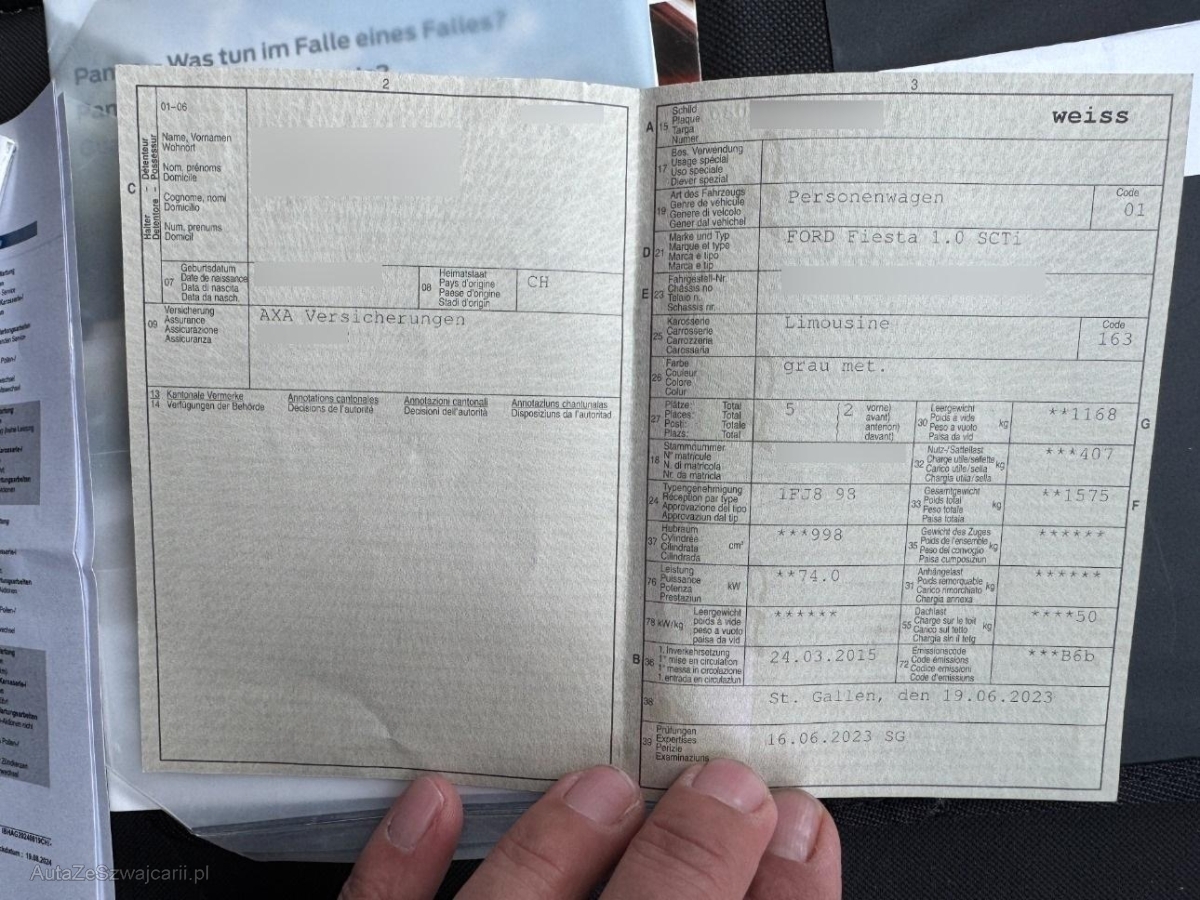 Was tun im Falle eines Falles?
2
01–06
Halter – Détenteur
Detentore – Possessur
C
Name, Vornamen
Wohnort
Nom, prénoms
Domicile
Cognome, nomi
Domicilio
Num, prenums
Domicil
07
Geburtsdatum
Date de naissance
Data di nascita
Data da nasch.
08
Heimatstaat
Pays d'origine
Paese d'origine
Stadi d'origin
CH
09
Versicherung
Assurance
Assicurazione
Assicuranza
AXA Versicherungen
13 Kantonale Vermerke
14 Verfügungen der Behörde
Annotations cantonales
Décisions de l'autorité
Annotazioni cantonali
Decisioni dell'autorità
Annotaziuns chantunalas
Disposiziuns da l'autoritad
3
A 15
Schild
Plaque
Targa
Numer
weiss
17
Bes. Verwendung
Usage spécial
Uso speciale
Diever spezial
19
Art des Fahrzeugs
Genre de véhicule
Genere di veicolo
Gener dal vehichel
Personenwagen
Code
01
D 21
Marke und Typ
Marque et type
Marca e tipo
Marca e tip
FORD Fiesta 1.0 SCTi
E 23
Fahrgestell-Nr.
Châssis no
Telaio n.
Schassis nr.
25
Karosserie
Carrosserie
Carrozzeria
Carosseria
Limousine
Code
163
26
Farbe
Couleur
Colore
Colur
grau met.
27
Plätze: Total
Places: Total
Posti: Totale
Plazs: Total
5
(2 vorne)
avant)
anteriori)
davant)
30
Leergewicht
Poids à vide
Peso a vuoto
Paisa da vid
kg
**1168
G
18
Stammnummer
N° matricule
N. di matricola
Nr. da matricla
32
Nutz-/Sattellast
Charge utile/sellette
Carico utile/sella
Chargia utila/sella
kg
***407
24
Typengenehmigung
Réception par type
Approvazione del tipo
Approvaziun dal tip
1FJ8 98
33
Gesamtgewicht
Poids total
Peso totale
Paisa totala
kg
**1575
F
37
Hubraum
Cylindrée
Cilindrata
Cilindrada
cm³
***998
35
Gewicht des Zuges
Poids de l'ensemble
Peso del convoglio
Paisa cumposiziun
kg
******
76
Leistung
Puissance
Potenza
Prestaziun
kW
**74.0
31
Anhängelast
Poids remorquable
Carico rimorchiato
Chargia annexa
kg
******
78 kW/kg
Leergewicht
poids à vide
peso a vuoto
paisa da vid
******
55
Dachlast
Charge sur le toit
Carico sul tetto
Chargia sin il tetg
kg
****50
B 36
1. Inverkehrsetzung
1re mise en circulation
1a messa in circolazione
1. entrada en circulaziun
24.03.2015
72
Emissionscode
Code émissions
Codice emissioni
Code d'emissiuns
***B6b
38
St. Gallen, den 19.06.2023
39
Prüfungen
Expertises
Perizie
Examinaziuns
16.06.2023 SG
AutaZeSzwajcarii.pl